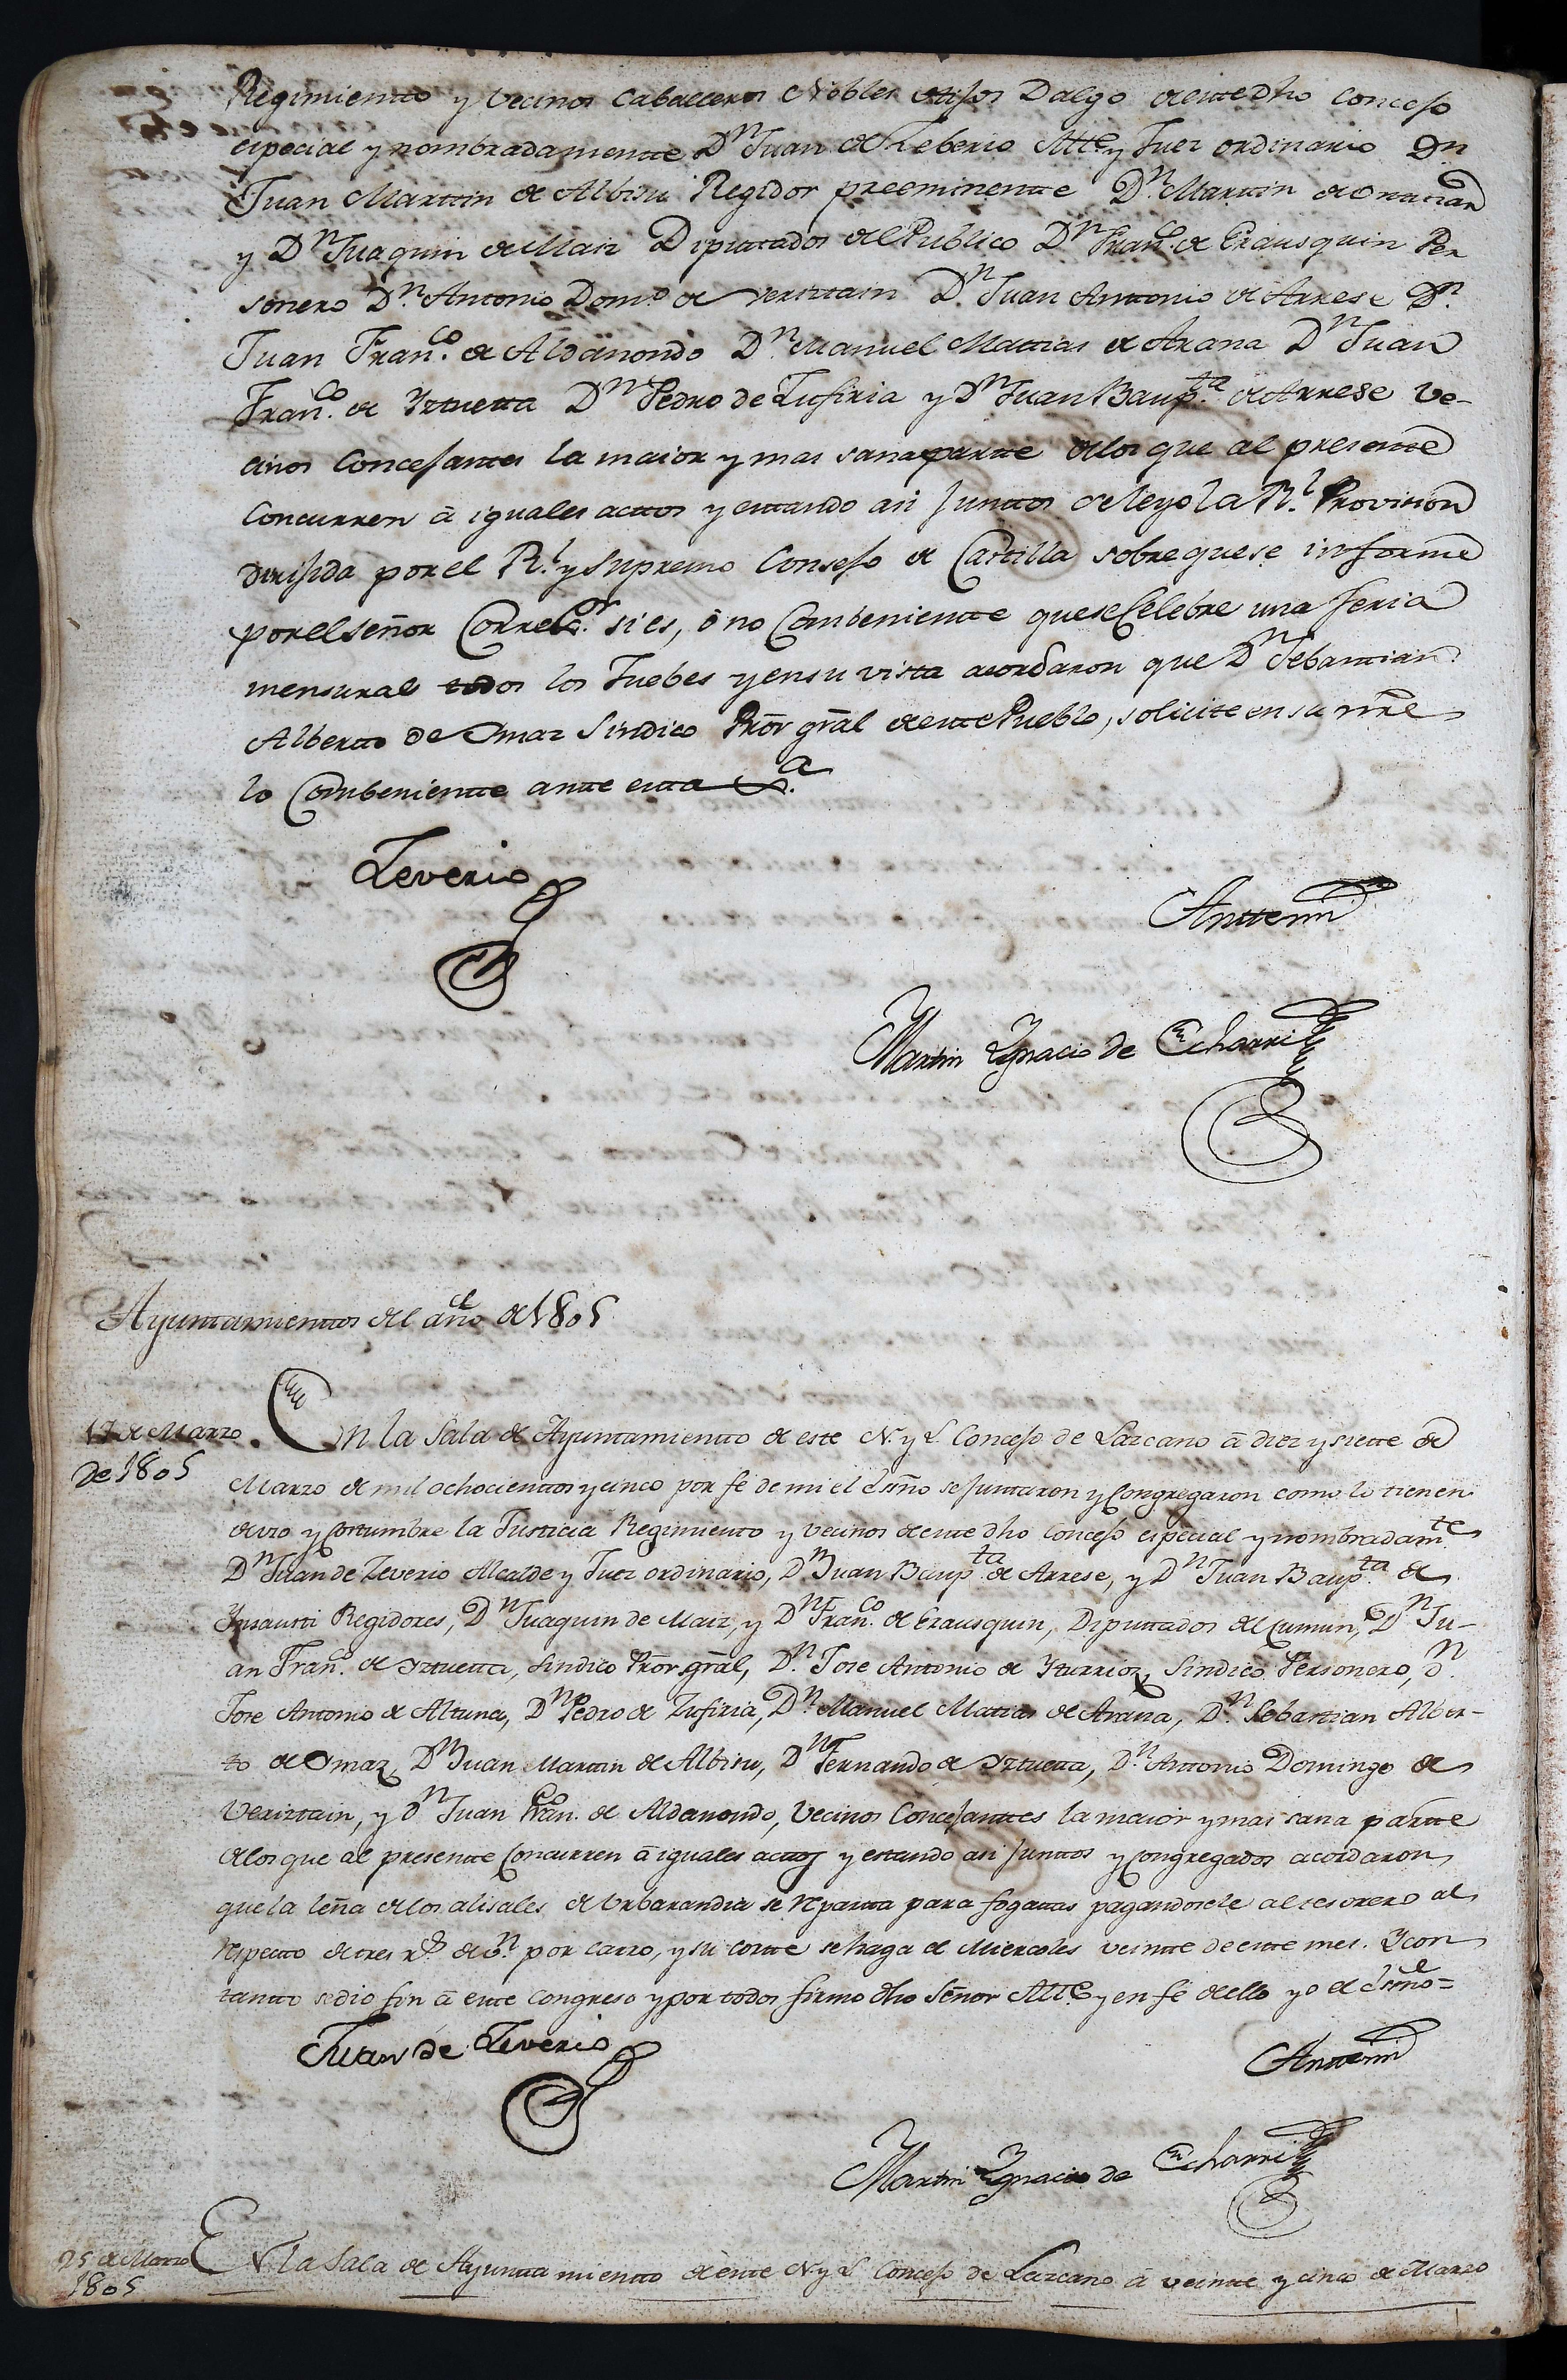 Regimientto y Vecinos Caballeros Nobles Hijos Dalgo de este Dho Concejo
especial y nombradamentte Dn. Juan de Zeberio Altte. y Juez ordinario Dn
Juan Marttin de Albisu Regidor preeminentte Dn. Marttin de
y Dn. Juaquin de Maiz Diputtados del Publico Dn. Franco. de Erausquin Per
sonero Dn. Antonio Domo. de veriztain Dn. Juan Anttonio de Arrese Dn.
Juan Franco. de Aldanondo Dn. Manuel Mattias de Arana Dn. Juan
Franco. de Yztuetta Dn. Pedro de Zufiria y Dn. Juan Baupta. de Arrese Ve-
cinos Concejantes la maior y mas sana partte de los que al presentte
Concurren â iguales acttos y estando asi Junttos se leyo la Rl. Provision
dirijida por el Rl. y Supremo Consejo de Castilla sobre que se informe
por el señor Corregor. si es, ô no Combenientte que se Celebre una feria
mensural todos los Juebes y en su vista acordaron que Dn. Sebasttian
Albertto de Omaz Sindico Pror gral de este Pueblo, solicite en su nre
lo Combenientte antte esta
Zeverio
Anttemi
Martin Ygnacio de Echarri
Ayuntamienttos del año de 1805
17 de Marzo
de 1805
En la Sala de Ayuntamientto de este N. y L. Concejo de Lazcano â diez y siette de
Marzo de mil ochocienttos y cinco por fé de mi el Esno se Juntaron y Congregaron como lo tienen
de uso y costumbre la Justicia Regimiento y vecinos de este dho Concejo especial y nombradamte.
Dn. Juan de Zeverio Alcalde y Juez ordinario, Dn. Juan Baupta. de Arrese, y Dn. Juan Baupta. de
Ynsausti Regidores, Dn. Juaquin de Maiz, y Dn. Franco. de Erausquin, Diputtados del Cumun, Dn. Ju-
an Franco. de Yztuetta, Sindico Pror gral, Dn. Jose Antonio de Yturrioz, Sindico Personero, Dn.
Jose Antonio de Altuna, Dn. Pedro de Zufiria, Dn. Manuel Mattias de Arana, Dn. Sebastian Alber-
to de Omaz, Dn. Juan Martin de Albisu, Dn. Fernando de Yztuetta, Dn. Antonio Domingo de
Veriztain, y Dn. Juan Franco. de Aldanondo, Vecinos Concejanttes la maior y mas sana partte
de los que al presentte Concurren â iguales acttos y estando asi Junttos y Congregados acordaron
que la leña de los alisales de Urbarandia se repartta para fogattas pagandosele al tesorero al
respecto de tres rs. de vn. por carro, y su cortte se haga el Miercoles veintte de este mes. Y con
tantto se dio fin â este Congreso y por todos firmo dho Señor Altte. y en fé de ello yo el Esno=
Juan de Zeverio
Anttemi
Martin Ygnacio de Echarri
25 de Marzo
1805
En la Sala de Ayuntta mientto de este N. y L. Concejo de Lazcano â veintte y cinco de Marzo